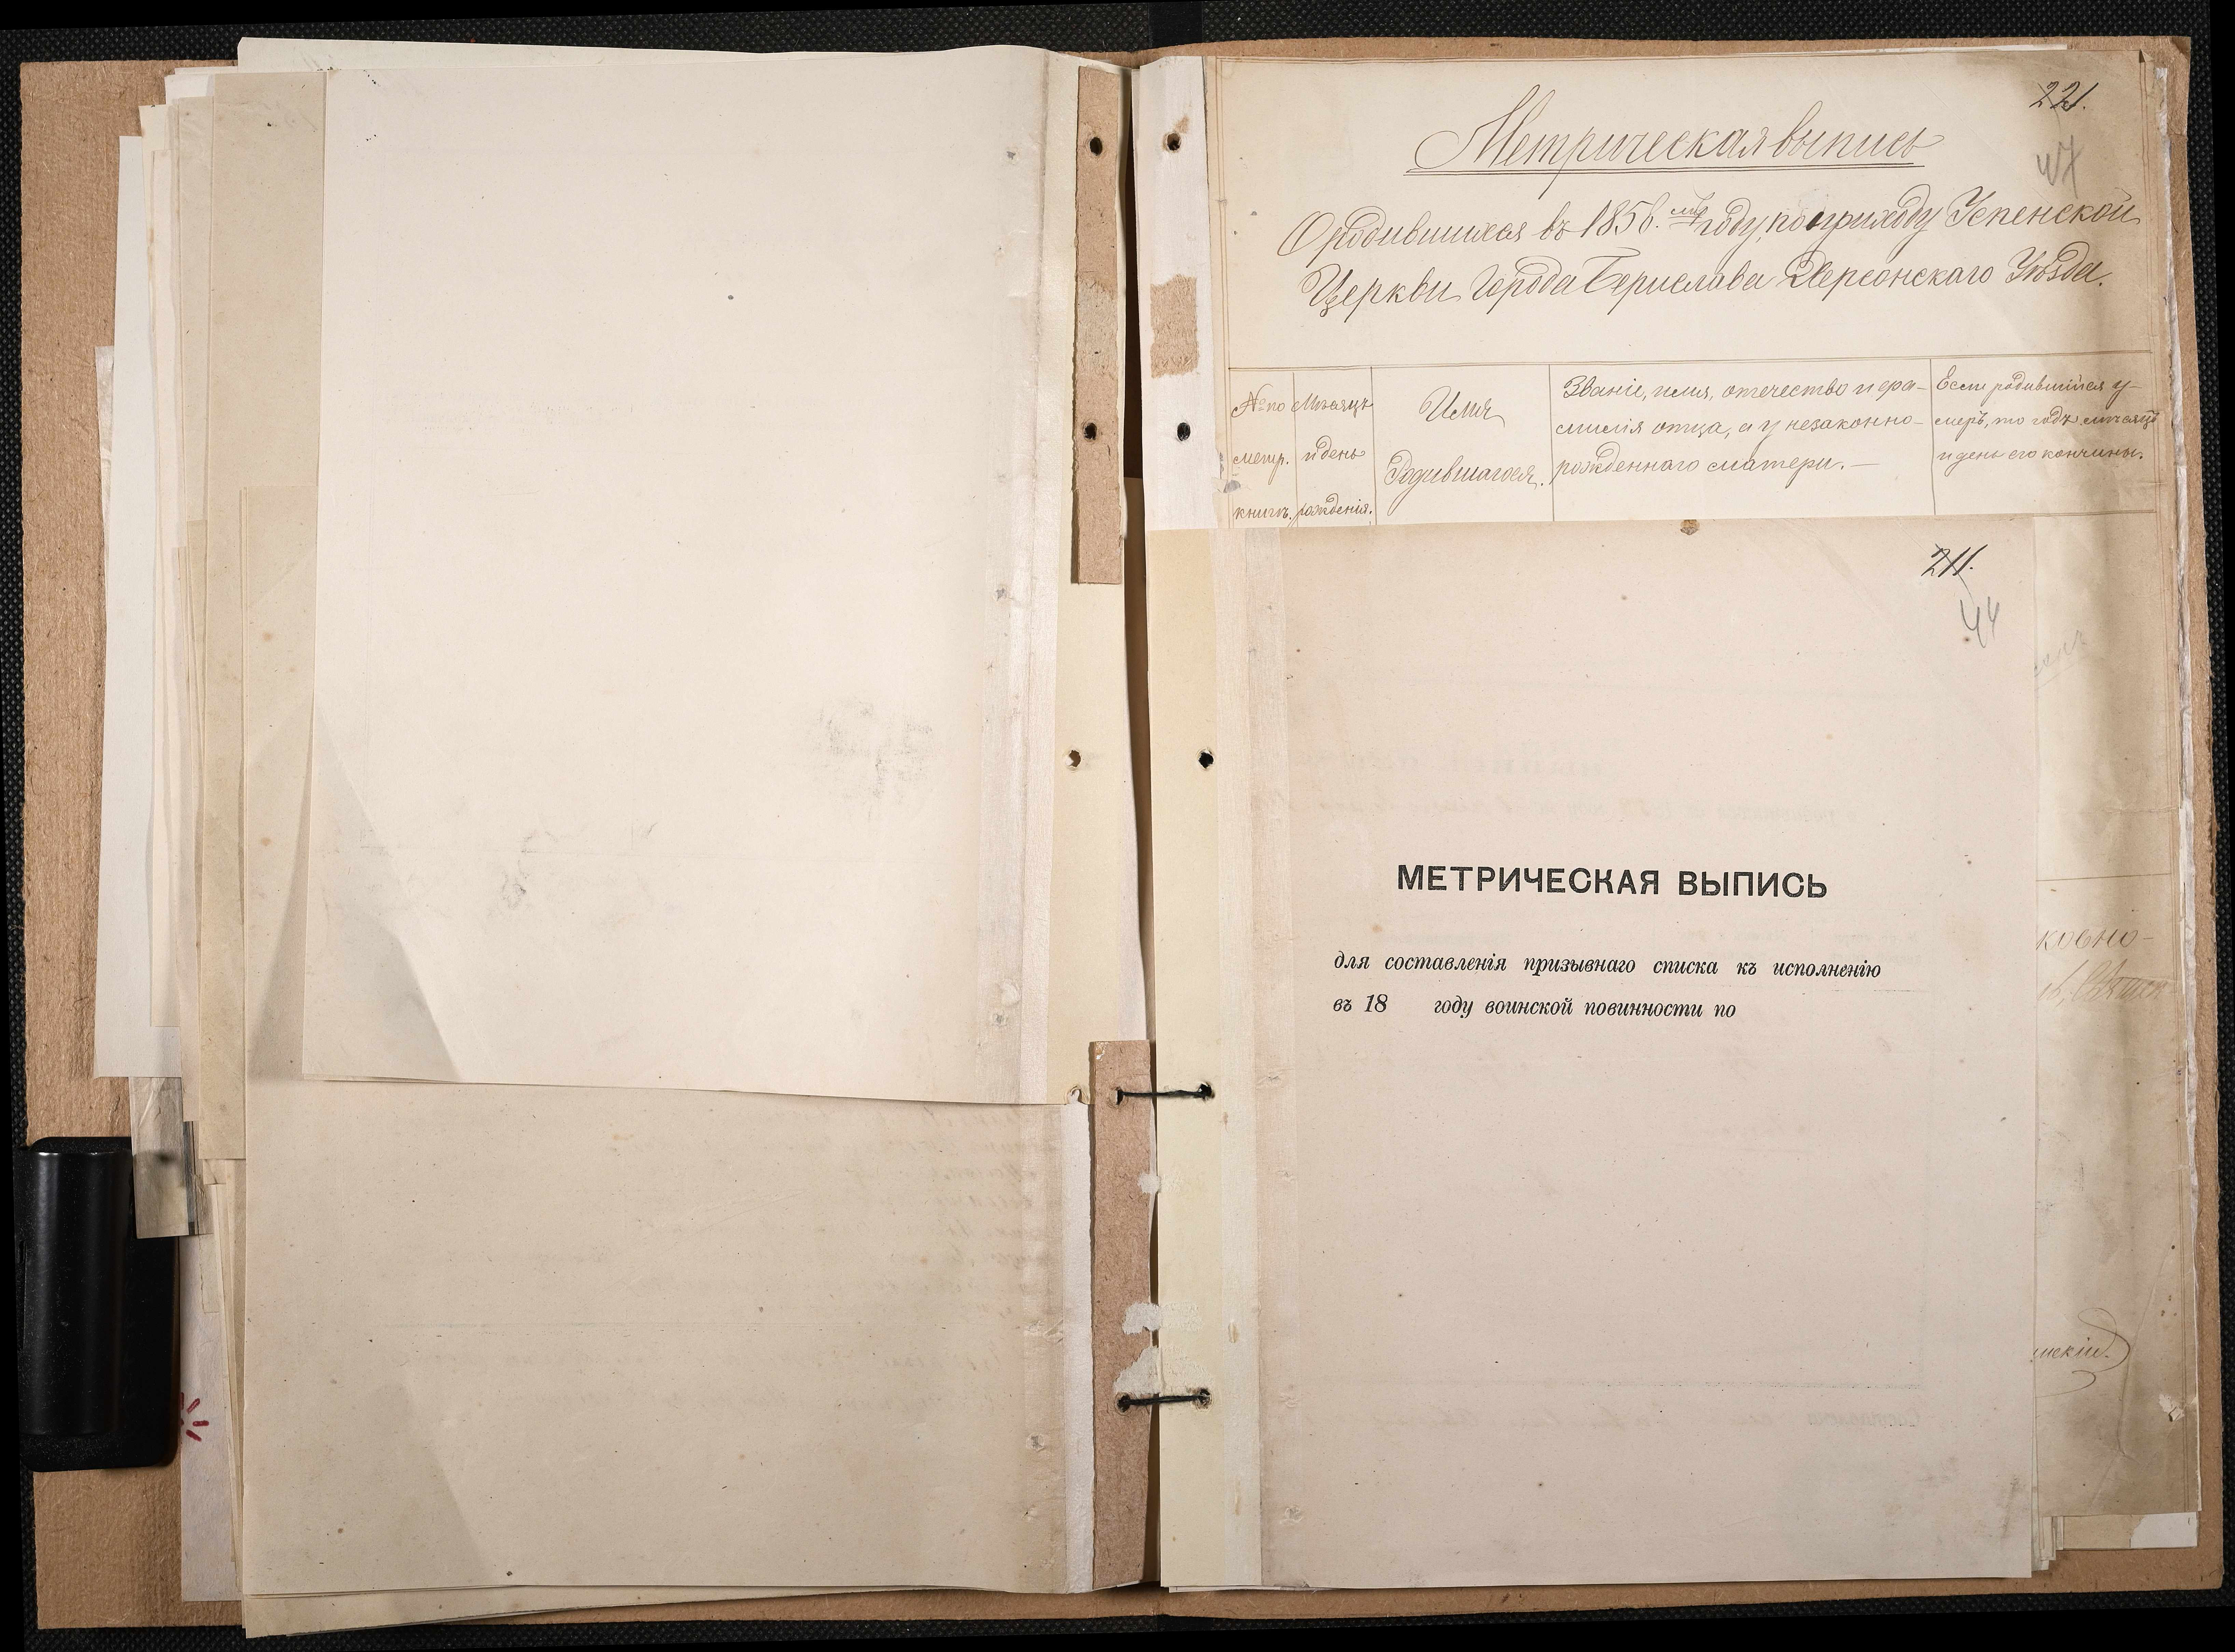 221.
47
Метрическая выпись
О родившихся въ 1856.мъ году, по приходу Успенской
Церкви Города Берислава Херсонскаго Уѣзда.
№ по метр. книгѣ.
Мѣсяцъ и день рожденія.
Имя Родившагося.
Званіе, имя, отчество и фа-
милія отца, а у незаконно-
рожденнаго матери. —
Если родившійся у-
меръ, то годъ мѣсяцъ
и день его кончины.
211.
44
МЕТРИЧЕСКАЯ ВЫПИСЬ
для составленія призывнаго списка къ исполненію
въ 18 году воинской повинности по
ковно-